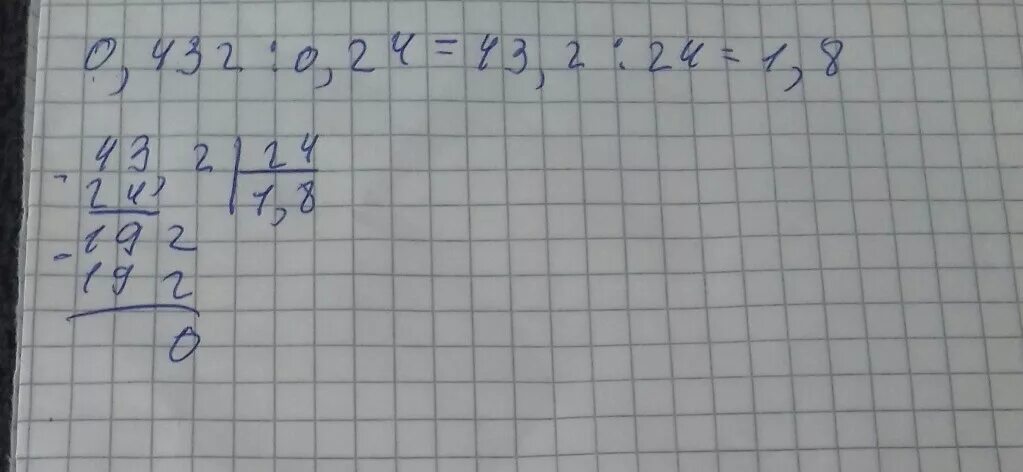 0,432:0,24=43,2:24=1,8
- 43,2 | 24
24 | 1,8
- 192
192
0